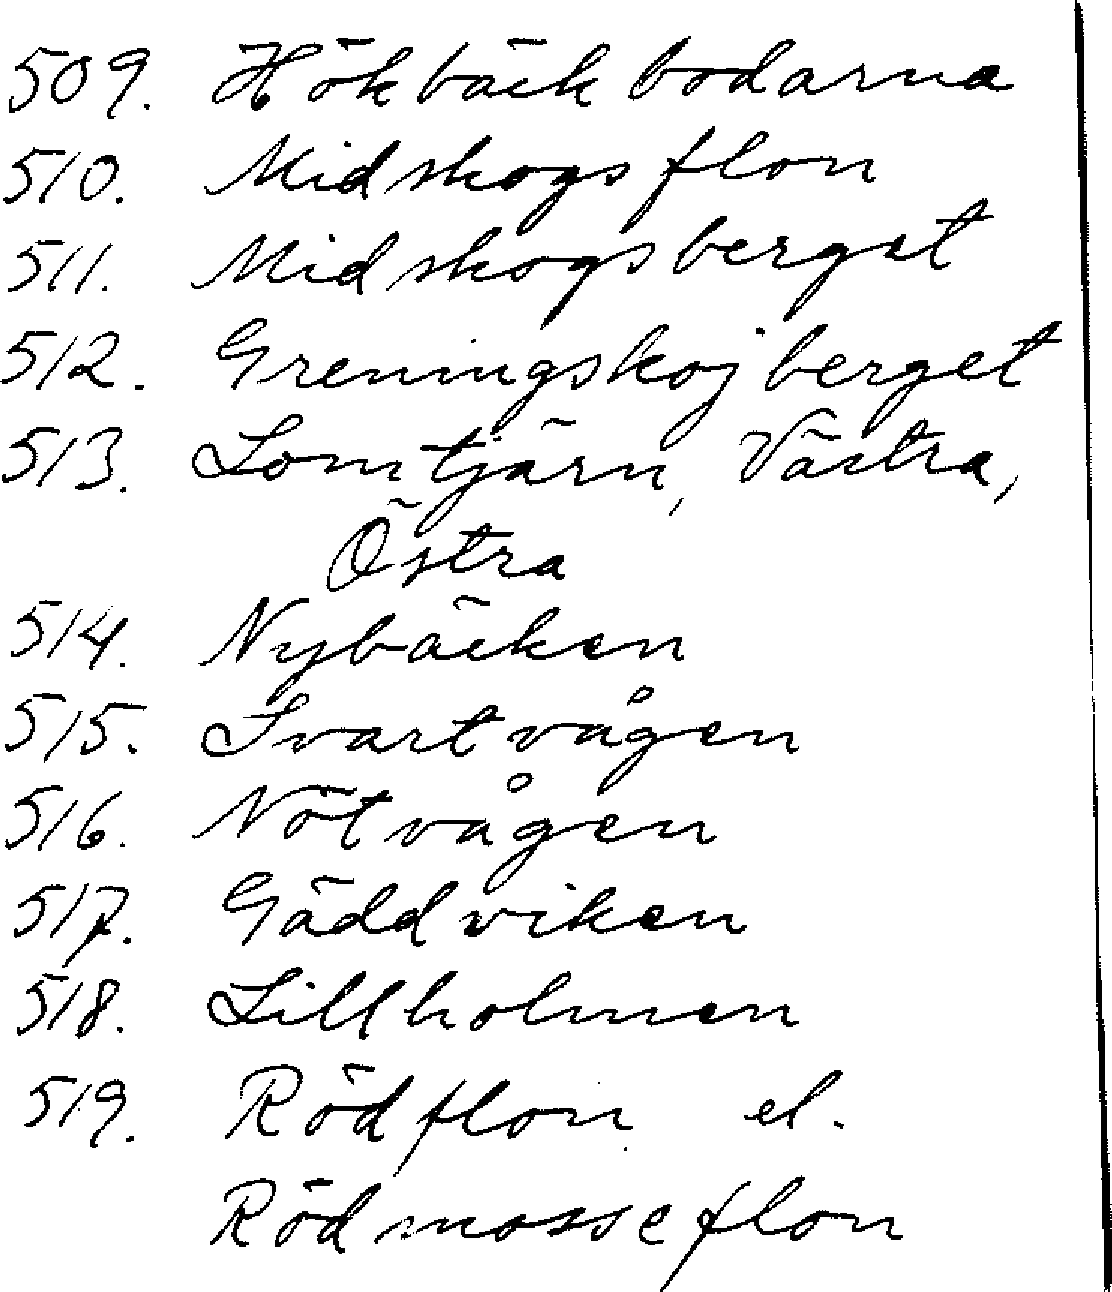 509. Hökbäckbodarna
510. Midskogsflon
511. Midskogsberget
512. Greningskojberget
513. Lomtjärn, Västra,
Östra
514. Nybäcken
515. Svartvågen
516. Nötvågen
517. Gäddviken
518. Lillholmen
519. Rödflon el.
Rödmosseflon